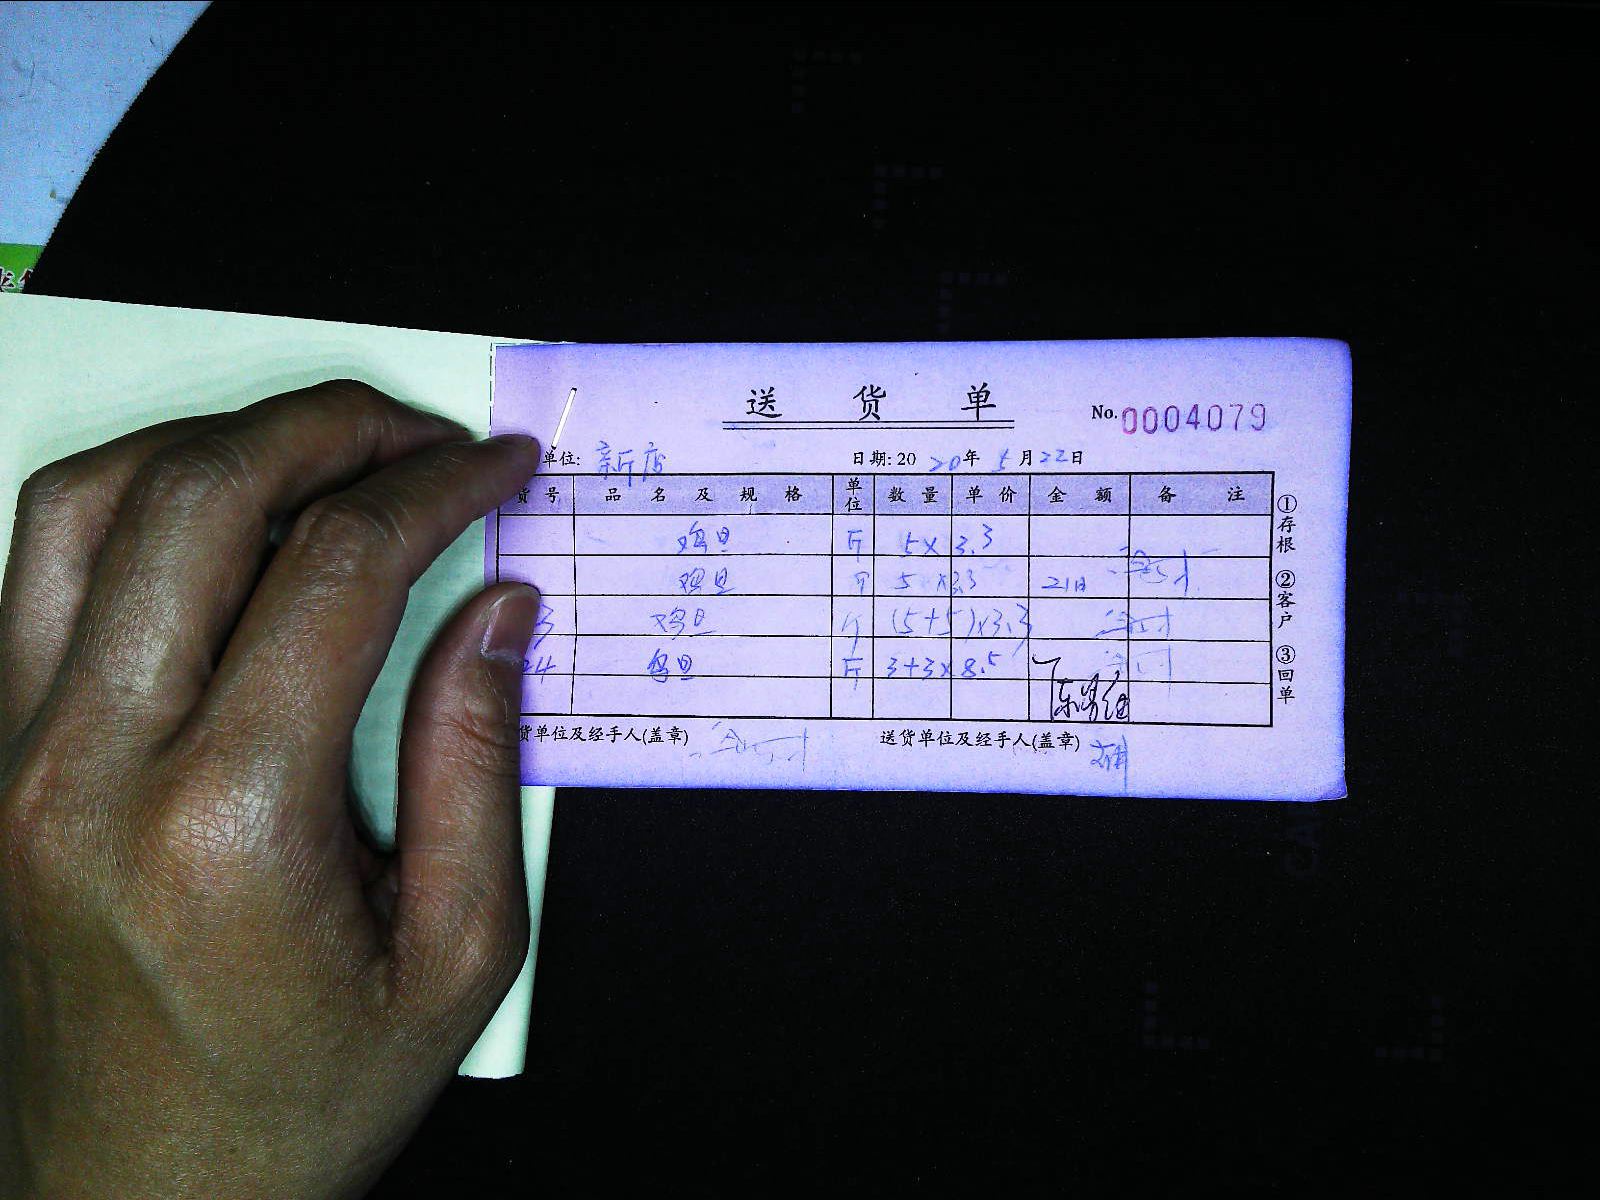 送货单 No.0004079
单位: 新店 日期: 20 20年 5月22日
货号 品名及规格 单位 数量 单价 金额 备注
鸡旦 斤 5× 3.3
鸡旦 斤 5 ×3.3 21日
3 鸡旦 斤 (5+5)×3.3
24 鸟旦 斤 3+3×8.5
货单位及经手人(盖章) 送货单位及经手人(盖章)
①存根 ②客户 ③回单